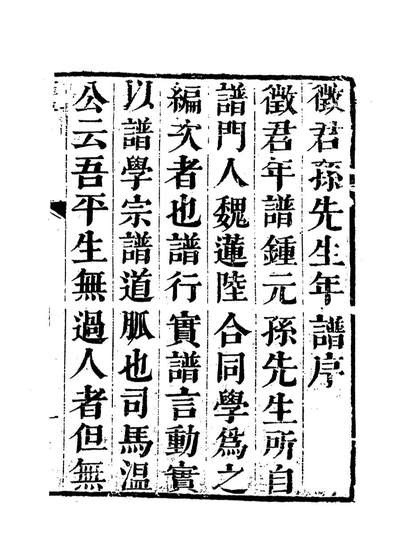 徵君孫先生年譜序
徵君年譜鍾元孫先生所自
譜門人魏蓮陸合同學爲之
編次者也譜行實譜言動實
以譜學宗譜道脈也司馬溫
公云吾平生無過人者但無